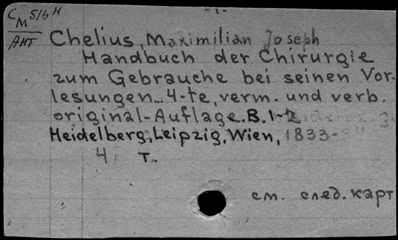 См516н
АНТ
-1-
Chelius, Maximilian Joseph
Handbuch der Chirurgie
zum Gebrauche bei seinen Vor-
lesungen... 4-te, verm. und verb.
original-Auflage. B. 1-2
Heidelberg, Leipzig, Wien, 1833-
4 т.
см. след. карт